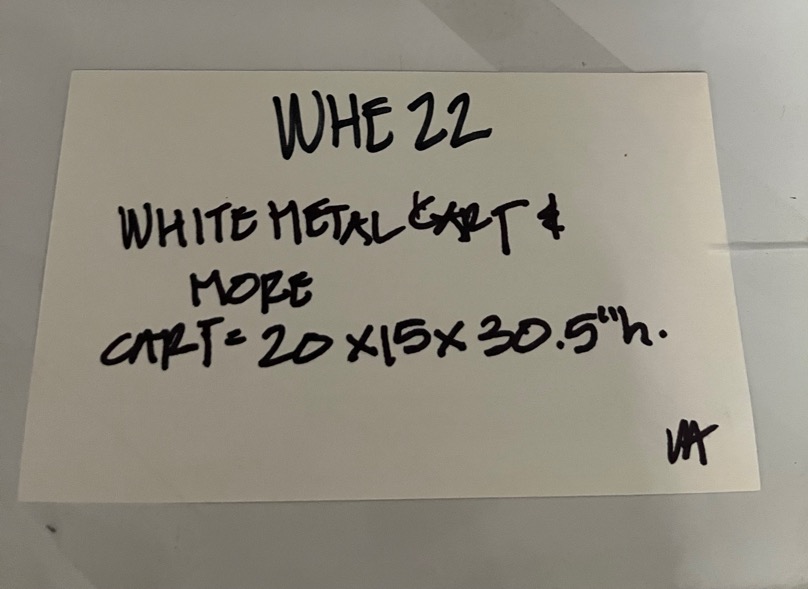 WHE 22
WHITE METAL CART &
MORE
CART = 20 x 15 x 30.5"h.
VA